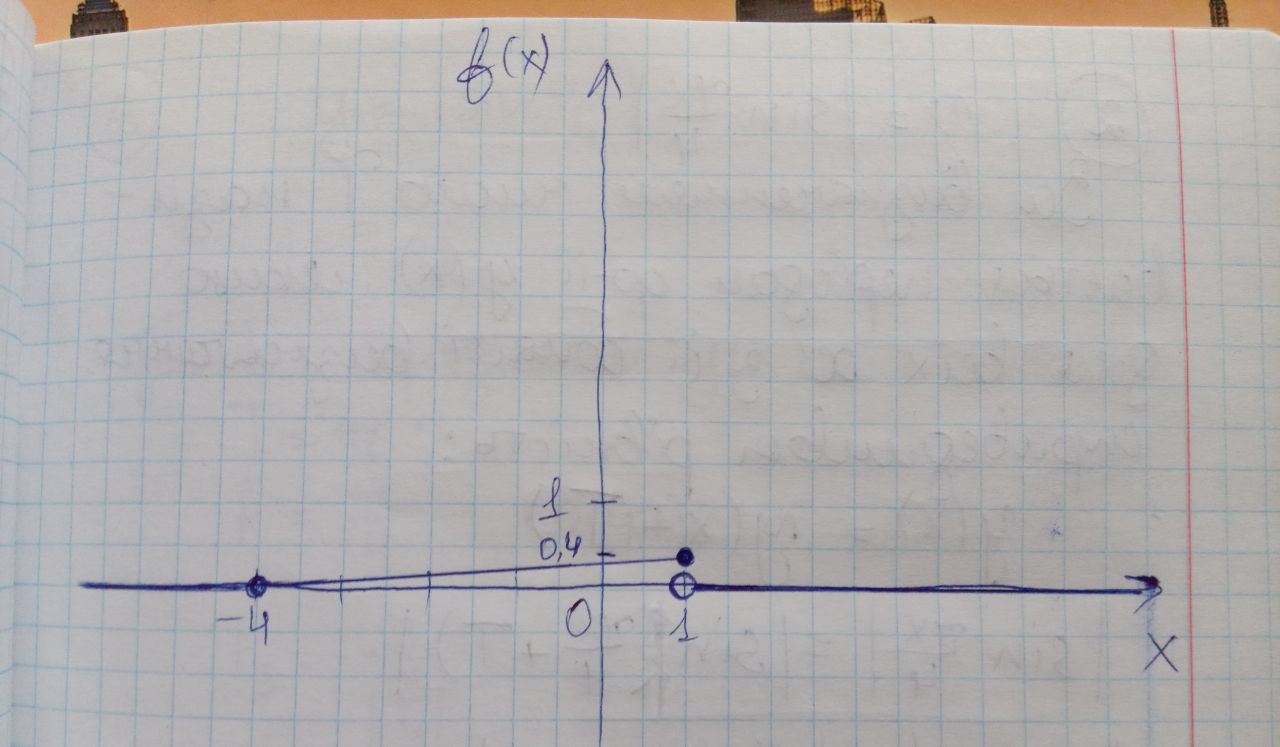 f(x)
1
0,4
-4
0
1
x